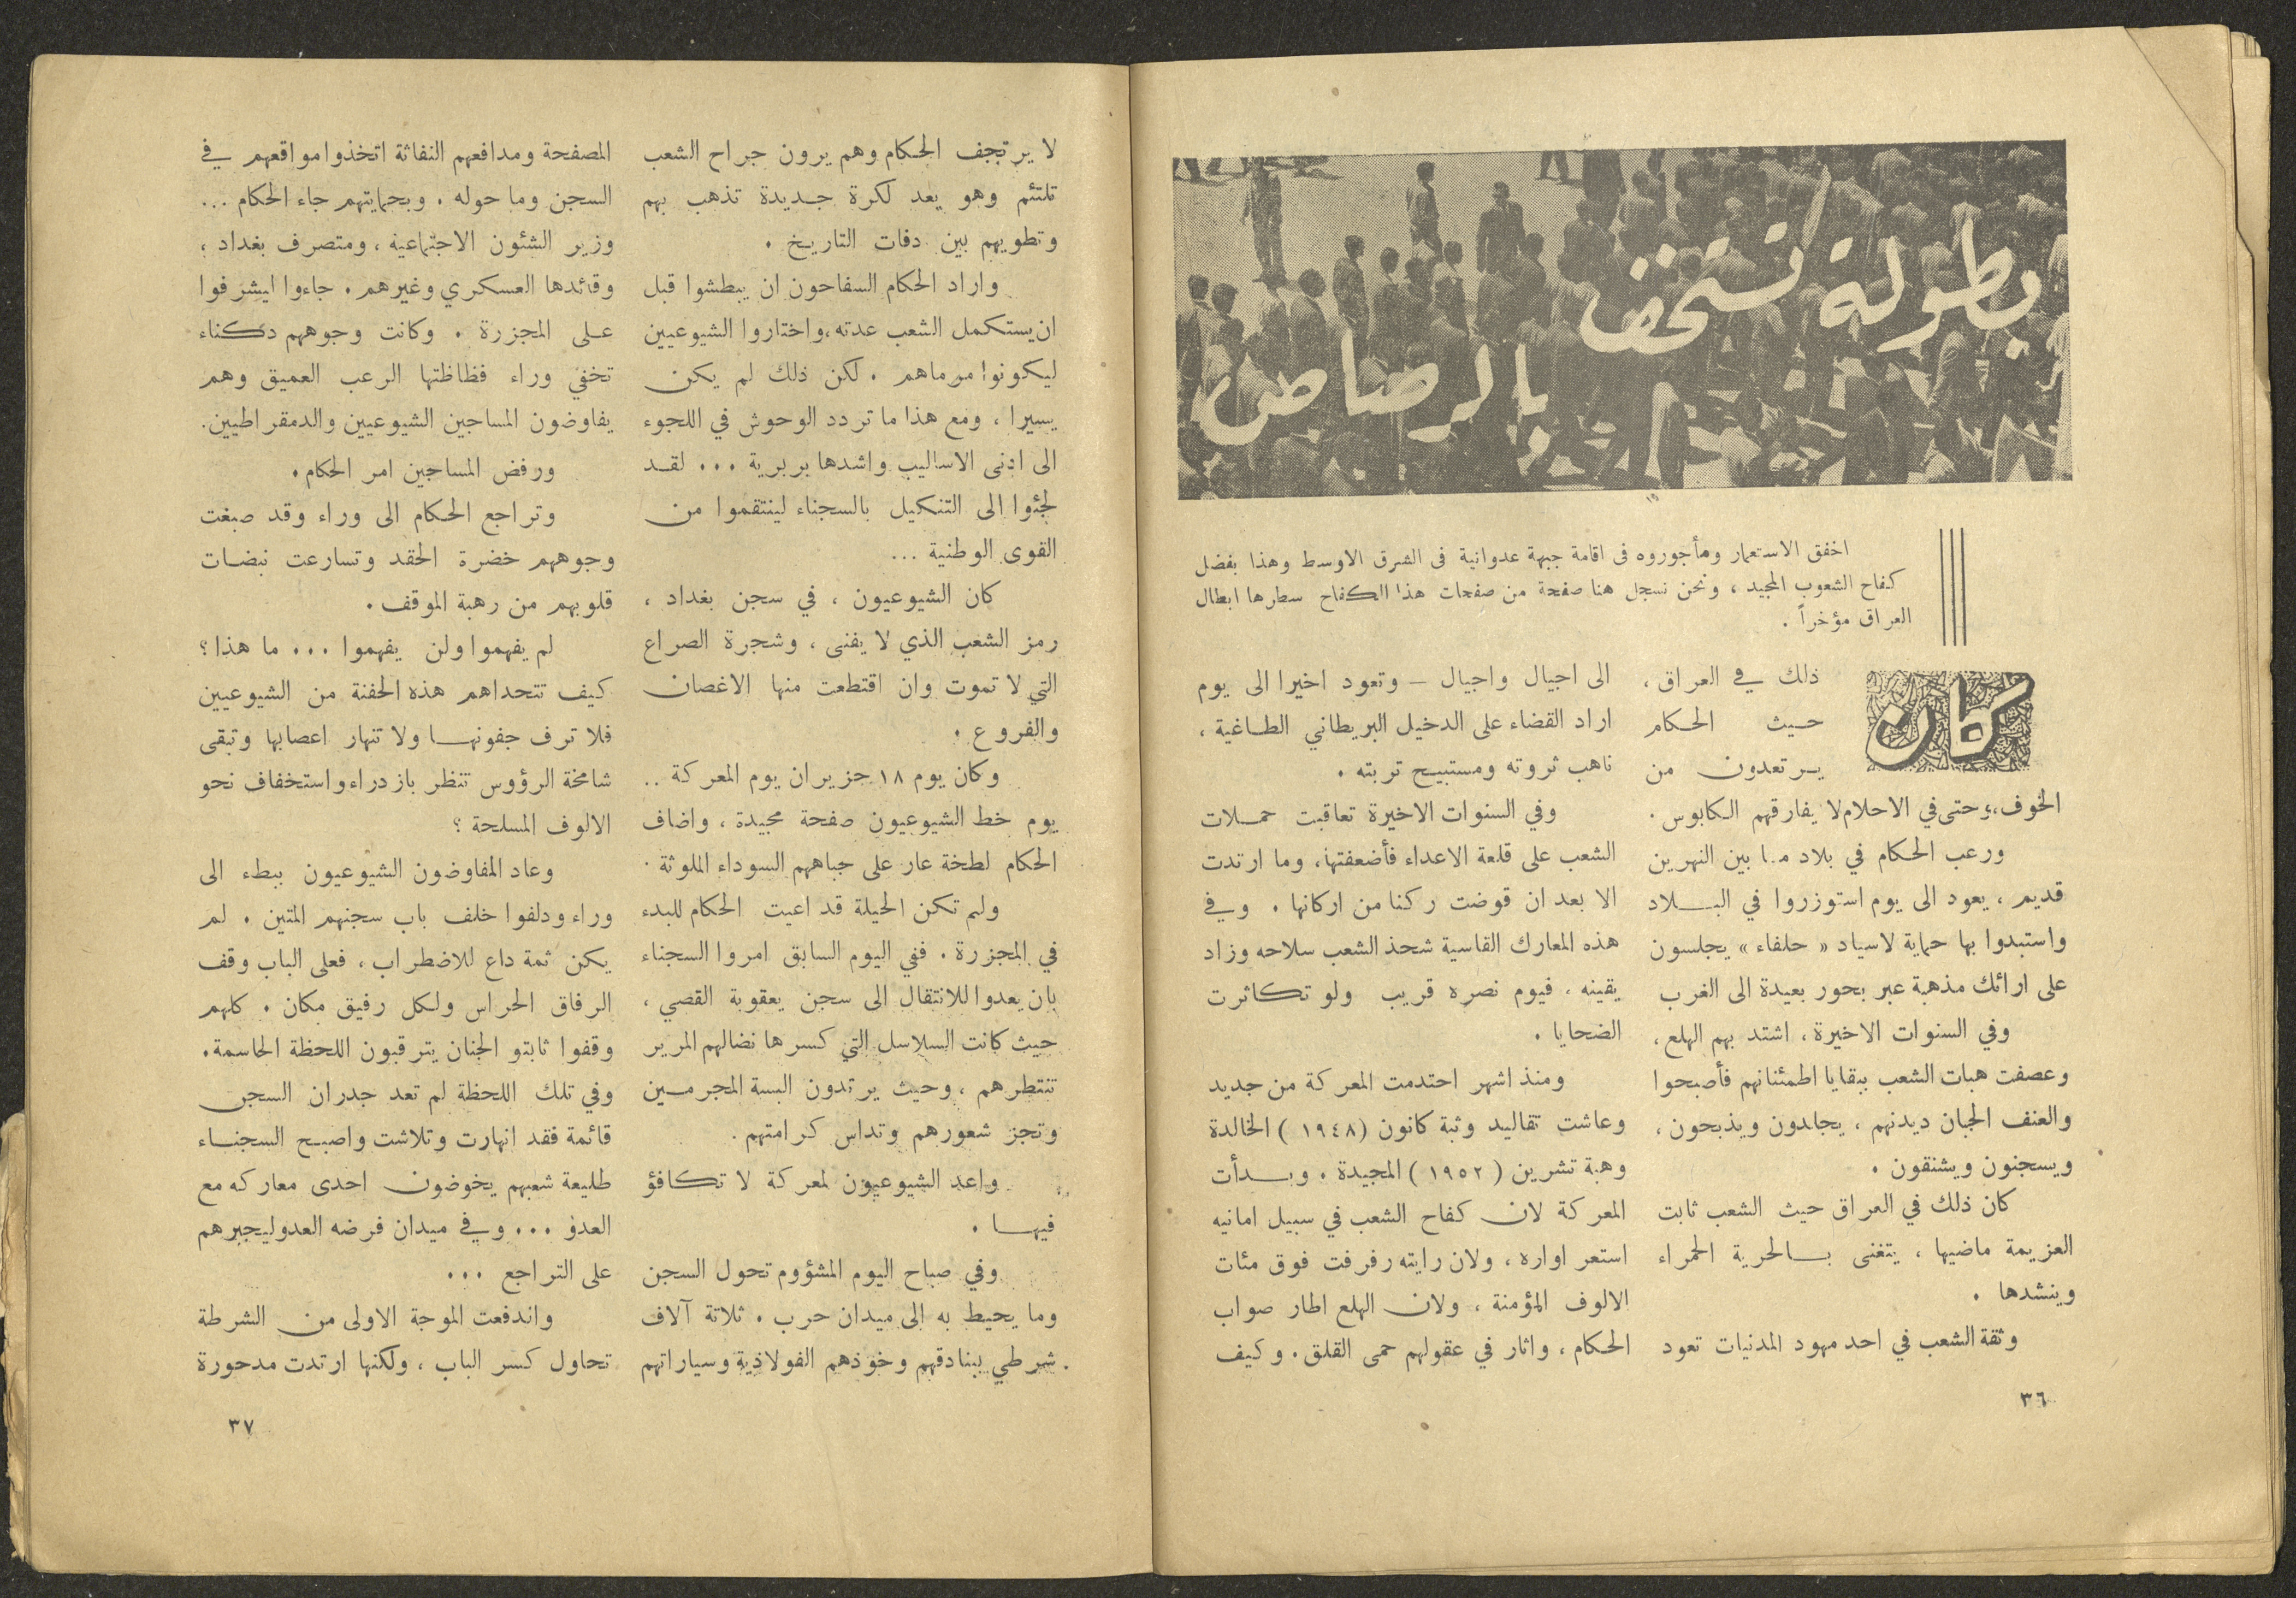 بطولة تستخف
بالرصاص
اخفق الاستعمار ومأجوروه فى اقامة جبهة عدوانية فى الشرق الاوسط وهذا بفضل
كفاح الشعوب المجيد ، ونحن نسجل هنا صفحة من صفحات هذا الكفاح سطرها ابطال
العراق مؤخراً .
كان
ذلك في العراق ،
حيث الحكام
يرتعدون من
الخوف ، وحتى في الاحلام لا يفارقهم الكابوس .
ورعب الحكام في بلاد ما بين النهرين
قديم ، يعود الى يوم استوزروا في البلاد
واستبدوا بها حماية لاسياد « حلفاء » يجلسون
على ارائك مذهبة عبر بحور بعيدة الى الغرب
وفي السنوات الاخيرة ، اشتد بهم الهلع ،
وعصفت هبات الشعب ببقايا اطمئنانهم فأصبحوا
والعنف الجبان ديدنهم ، يجلدون ويذبحون ،
ويسجنون ويشنقون .
كان ذلك في العراق حيث الشعب ثابت
العزيمة ماضيها ، يتغنى بالحرية الحمراء
وينشدها .
وثقة الشعب في احد مهود المدنيات تعود
الى اجيال واجيال – وتعود اخيرا الى يوم
اراد القضاء على الدخيل البريطاني الطاغية ،
ناهب ثروته ومستبيح تربته .
وفي السنوات الاخيرة تعاقبت حملات
الشعب على قلعة الاعداء فأضعفتها ، وما ارتدت
الا بعد ان قوضت ركنا من اركانها . وفي
هذه المعارك القاسية شحذ الشعب سلاحه وزاد
يقينه ، فيوم نصره قريب ولو تكاثرت
الضحايا .
ومنذ اشهر احتدمت المعركة من جديد
وعاشت تقاليد وثبة كانون ( ١٩٤٨ ) الخالدة
وهبة تشرين ( ١٩٥٢ ) المجيدة . وبدأت
المعركة لان كفاح الشعب في سبيل امانيه
استعر اواره ، ولان رايته رفرفت فوق مئات
الالوف المؤمنة ، ولان الهلع اطار صواب
الحكام ، واثار في عقولهم حمى القلق . وكيف
٣٦
لا يرتجف الحكام وهم يرون جراح الشعب
تلتئم وهو يعد لكرة جديدة تذهب بهم
وتطويهم بين دفات التاريخ .
واراد الحكام السفاحون ان يبطشوا قبل
ان يستكمل الشعب عدته ، واختاروا الشيوعيين
ليكونوا مرماهم . لكن ذلك لم يكن
يسيرا ، ومع هذا ما تردد الوحوش في اللجوء
الى ادنى الاساليب واشدها بربرية ... لقد
لجئوا الى التنكيل بالسجناء لينتقموا من
القوى الوطنية ...
كان الشيوعيون ، في سجن بغداد ،
رمز الشعب الذي لا يفنى ، وشجرة الصراع
التي لا تموت وان اقتطعت منها الاغصان
والفروع .
وكان يوم ١٨ حزيران يوم المعركة ..
يوم خط الشيوعيون صفحة مجيدة ، واضاف
الحكام لطخة عار على جباههم السوداء الملوثة .
ولم تكن الحيلة قد اعيت الحكام للبدء
في المجزرة . ففي اليوم السابق امروا السجناء
بان يعدوا للانتقال الى سجن يعقوبة القصي ،
حيث كانت السلاسل التي كسرها نضالهم المرير
تنتطرهم ، وحيث يرتدون البسة المجرمين
وتجز شعورهم وتداس كرامتهم .
واعد الشيوعيون لمعركة لا تكافؤ
فيها .
وفي صباح اليوم المشؤوم تحول السجن
وما يحيط به الى ميدان حرب . ثلاثة آلاف
شرطي ببنادقهم وخوذهم الفولاذية وسياراتهم
المصفحة ومدافعهم النفاثة اتخذوا مواقعهم في
السجن وما حوله . وبحمايتهم جاء الحكام ...
وزير الشئون الاجتماعية ، ومتصرف بغداد ،
وقائدها العسكري وغيرهم . جاءوا ليشرفوا
على المجزرة . وكانت وجوههم دكناء
تخفي وراء فظاظتها الرعب العميق وهم
يفاوضون المساجين الشيوعيين والدمقراطيين .
ورفض المساجين امر الحكام .
وتراجع الحكام الى وراء وقد صبغت
وجوههم خضرة الحقد وتسارعت نبضات
قلوبهم من رهبة الموقف .
لم يفهموا ولن يفهموا ... ما هذا ؟
كيف تتحداهم هذه الحفنة من الشيوعيين
فلا ترف جفونها ولا تنهار اعصابها وتبقى
شامخة الرؤوس تنظر بازدراء واستخفاف نحو
الالوف المسلحة ؟
وعاد المفاوضون الشيوعيون ببطء الى
وراء ودلفوا خلف باب سجنهم المتين . لم
يكن ثمة داع للاضطراب ، فعلى الباب وقف
الرفاق الحراس ولكل رفيق مكان . كلهم
وقفوا ثابتو الجنان يترقبون اللحظة الحاسمة .
وفي تلك اللحظة لم تعد جدران السجن
قائمة فقد انهارت وتلاشت واصبح السجناء
طليعة شعبهم يخوضون احدى معاركه مع
العدو ... وفي ميدان فرضه العدو ليجبرهم
على التراجع ...
واندفعت الموجة الاولى من الشرطة
تحاول كسر الباب ، ولكنها ارتدت مدحورة
٣٧